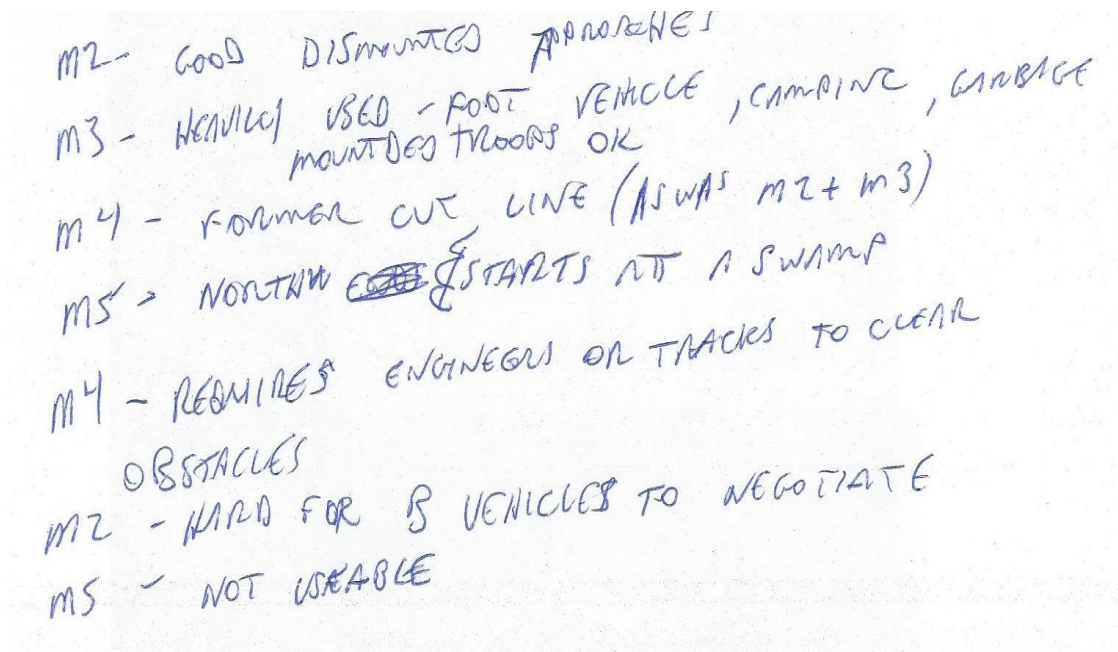 M2 - GOOD DISMOUNTED APPROACHES
M3 - HEAVILY USED - FOOT VEHICLE, CAMPING, GARBAGE
MOUNTDED TROOPS OK
M4 - FORMER CUT LINE (AS WAS M2 + M3)
M5 - NORTH STARTS AT A SWAMP
M4 - REQUIRES ENGINEERS OR TRACKS TO CLEAR
OBSTACLES
M2 - HARD FOR B VEHICLES TO NEGOTIATE
M5 - NOT USEABLE